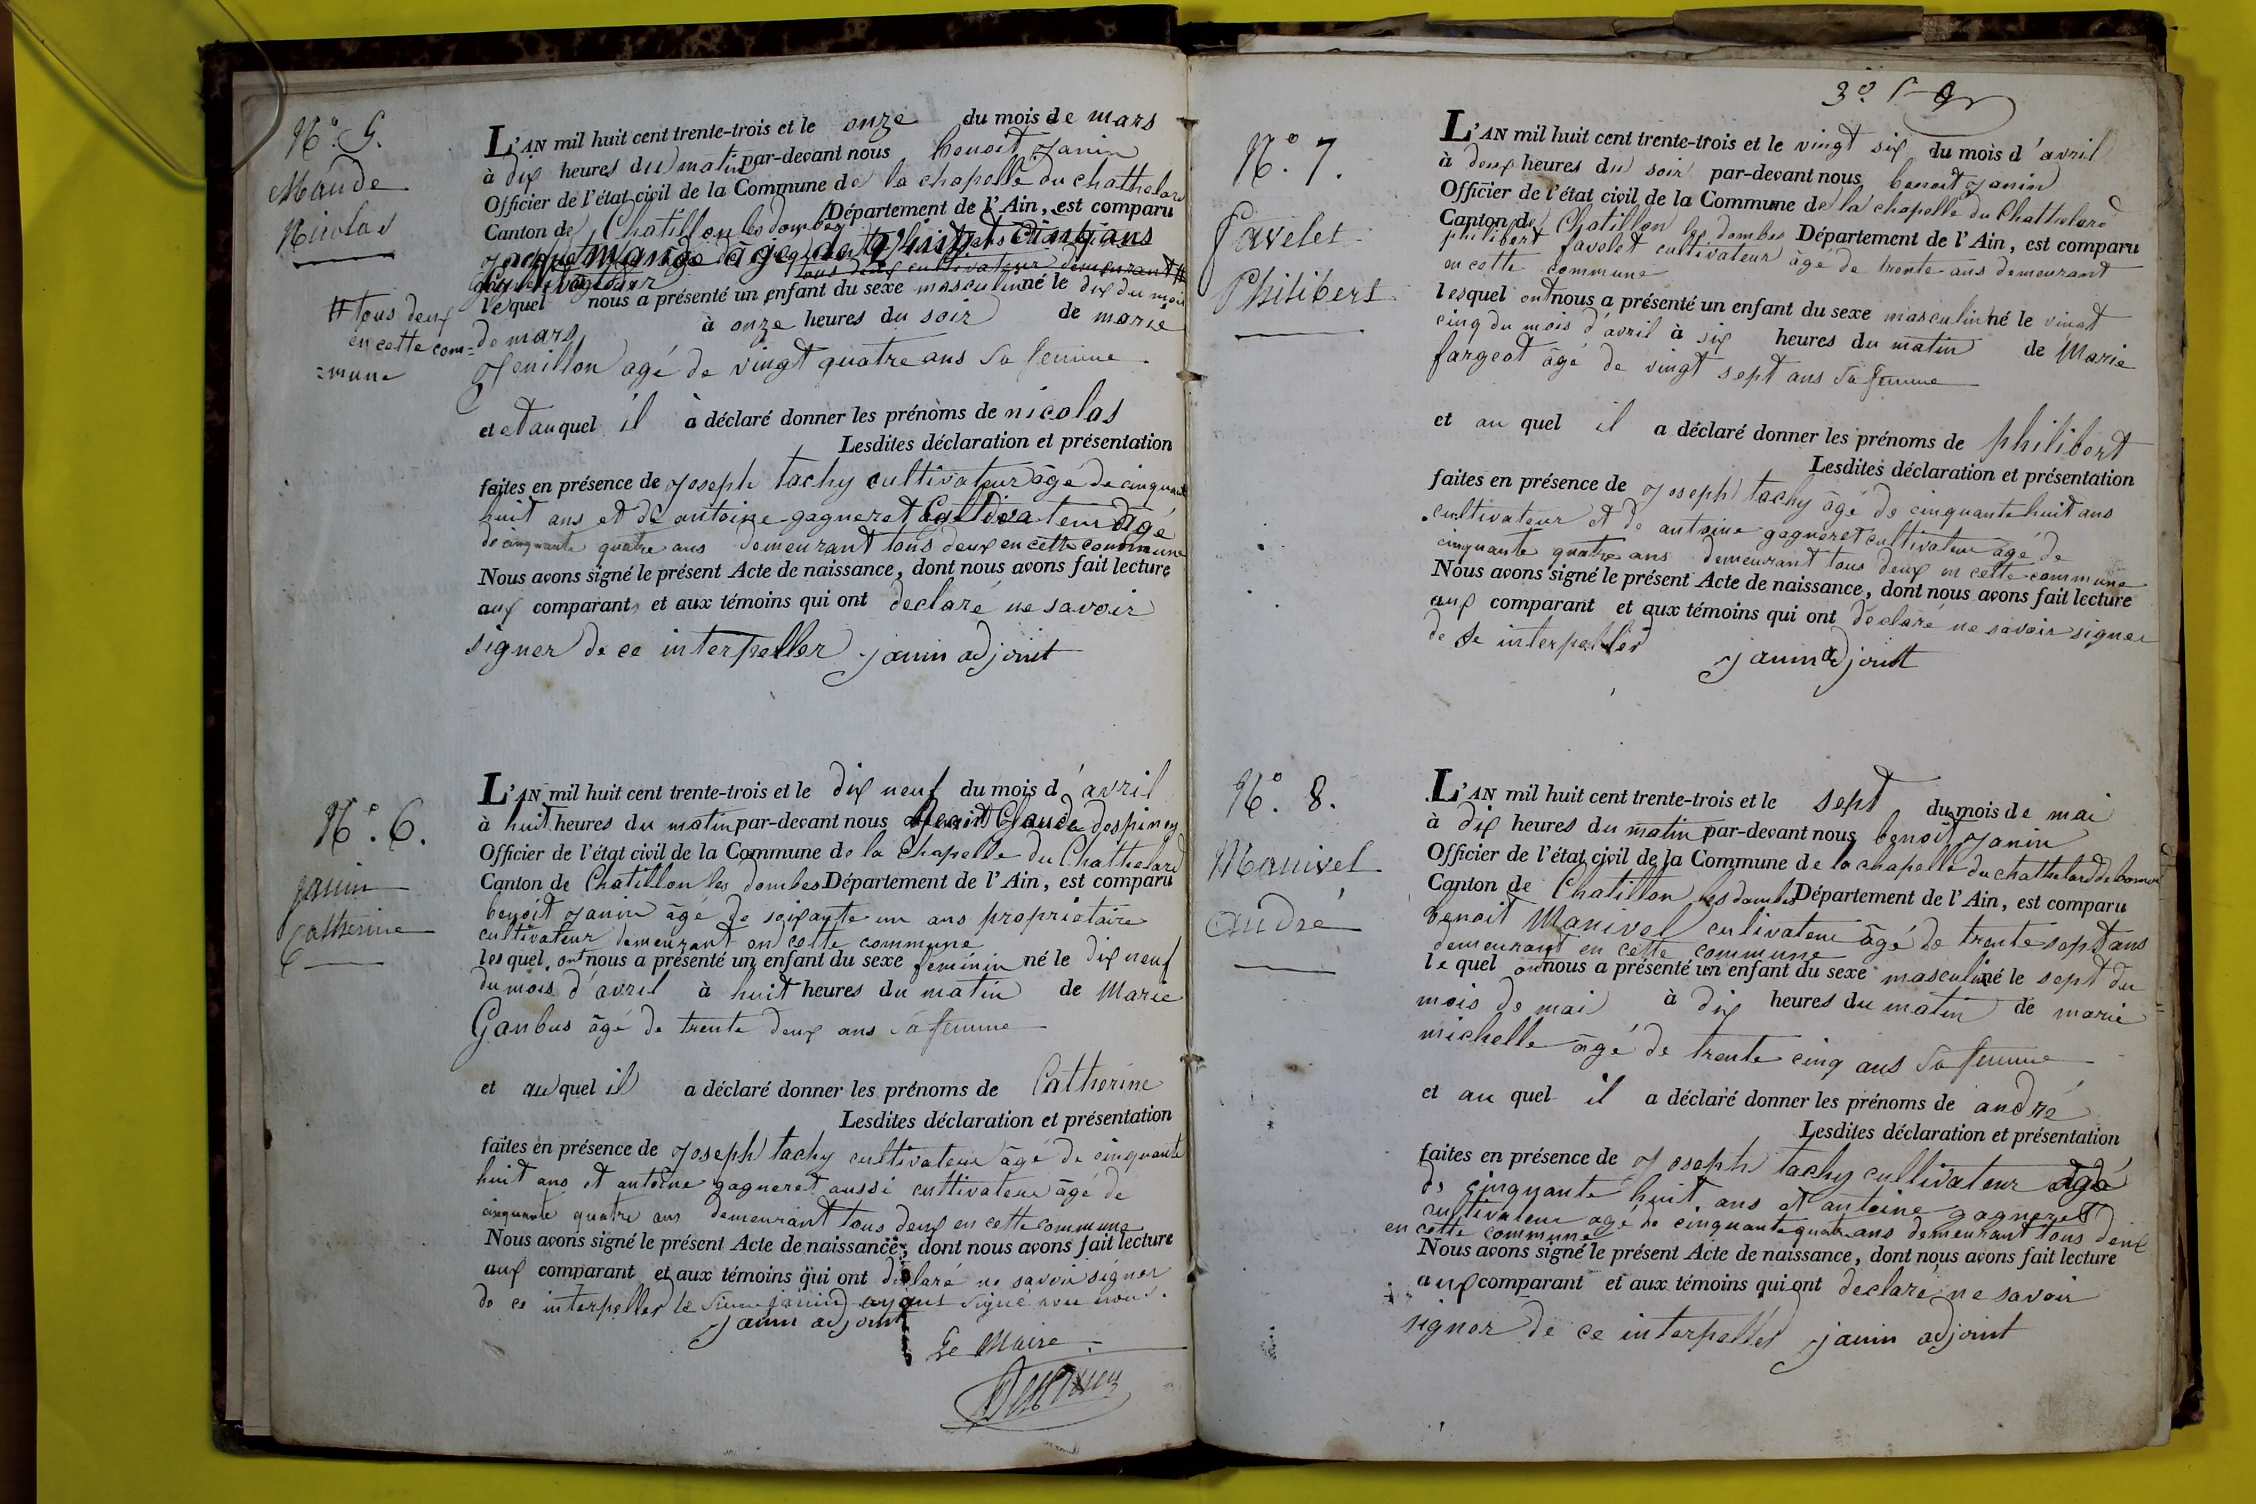 N.º 5.
Mande
Nicolas
# tous deux
en cette com=
=mune
L'AN mil huit cent trente-trois et le onze du mois de mars
à dix heures du matin par-devant nous benoit Janin
Officier de l'état civil de la Commune de la chapelle du chathelard
Canton de Chatillon les dombes Département de l'Ain, est comparu
mande âgé de vingt cinq ans
tous deux cultivateur demeurant #
lequel nous a présenté un enfant du sexe masculin né le dix du mois
de mars à onze heures du soir de marie
Jenillon agé de vingt quatre ans sa femme
et et au quel il à déclaré donner les prénoms de nicolas
Lesdites déclaration et présentation
faites en présence de Joseph tachy cultivateur âgé de cinquante
huit ans et de antoine gagneret Cultivateur âgé
de cinquante quatre ans demeurant tous deux en cette commune
Nous avons signé le présent Acte de naissance, dont nous avons fait lecture
aux comparants et aux témoins qui ont declaré ne savoir
signer de ce interpeller janin adjoint
N.º 6.
janin
Catherine
L'AN mil huit cent trente-trois et le dix neuf du mois d'avril
à huit heures du matin par-devant nous Claude despiney
Officier de l'état civil de la Commune de la chapelle du Chathelard
Canton de Chatillon les dombes Département de l'Ain, est comparu
benoit Janin âgé de soixante un ans propriétaire
cultivateur demeurant en cette commune
lesquel ont nous a présenté un enfant du sexe feminin né le dix neuf
du mois d'avril à huit heures du matin de Marie
Ganbus âgé de trente deux ans sa femme
et au quel il a déclaré donner les prénoms de Catherine
Lesdites déclaration et présentation
faites en présence de Joseph tachy cultivateur âgé de cinquante
huit ans et antoine gagneret aussi cultivateur âgé de
cinquante quatre ans demeurant tous deux en cette commune
Nous avons signé le présent Acte de naissance, dont nous avons fait lecture
aux comparant et aux témoins qui ont déclaré ne savoir signer
de ce interpeller le sieur janin ayant signé avec nous.
janin adjoint
Le Maire
Despiney
3.º
N.º 7.
favelet
Philibert
L'AN mil huit cent trente-trois et le vingt six du mois d'avril
à deux heures du soir par-devant nous benoit Janin
Officier de l'état civil de la Commune de la chapelle du Chathelard
Canton de Chatillon les dombes Département de l'Ain, est comparu
philibert favelet cultivateur âgé de trente ans demeurant
en cette commune
lesquel ont nous a présenté un enfant du sexe masculin né le vingt
cinq du mois d'avril à six heures du matin de Marie
fargeot âgé de vingt sept ans sa femme
et au quel il a déclaré donner les prénoms de philibert
Lesdites déclaration et présentation
faites en présence de Joseph tachy âgé de cinquante huit ans
cultivateur et de antoine gagneret cultivateur âgé de
cinquante quatre ans demeurant tous deux en cette commune
Nous avons signé le présent Acte de naissance, dont nous avons fait lecture
aux comparant et aux témoins qui ont déclaré ne savoir signer
de se interpeller janin adjoint
N.º 8.
Manivel
andré
L'AN mil huit cent trente-trois et le sept du mois de mai
à dix heures du matin par-devant nous benoit Janin
Officier de l'état civil de la Commune de la chapelle du chathelard
Canton de Chatillon les dombes Département de l'Ain, est comparu
benoit Manivel cultivateur âgé de trente sept ans
demeurant en cette commune
lequel ont nous a présenté un enfant du sexe masculin né le sept du
mois de mai à dix heures du matin de marie
michelle âgé de trente cinq ans sa femme
et au quel il a déclaré donner les prénoms de andré
Lesdites déclaration et présentation
faites en présence de Joseph tachy cultivateur âgé
de cinquante huit ans et antoine gagneret
cultivateur agé de cinquante quatre ans demeurant tous deux
en cette commune
Nous avons signé le présent Acte de naissance, dont nous avons fait lecture
aux comparant et aux témoins qui ont declaré ne savoir
signer de ce interpeller janin adjoint